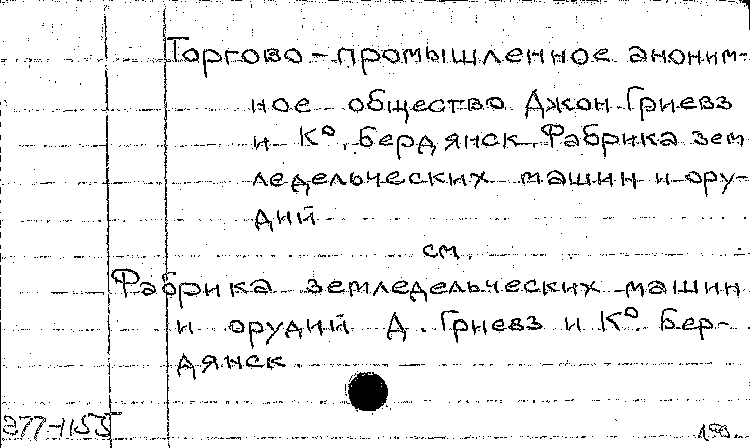 Торгово-промышленное аноним-
ное общество Джон Гриевз
и К°. Бердянск Фабрика зем
ледельческих машин и ору-
дий
см.
Фабрика земледельческих машин
и орудий Д. Гриевз и К°. Бер-
дянск.
277-1155